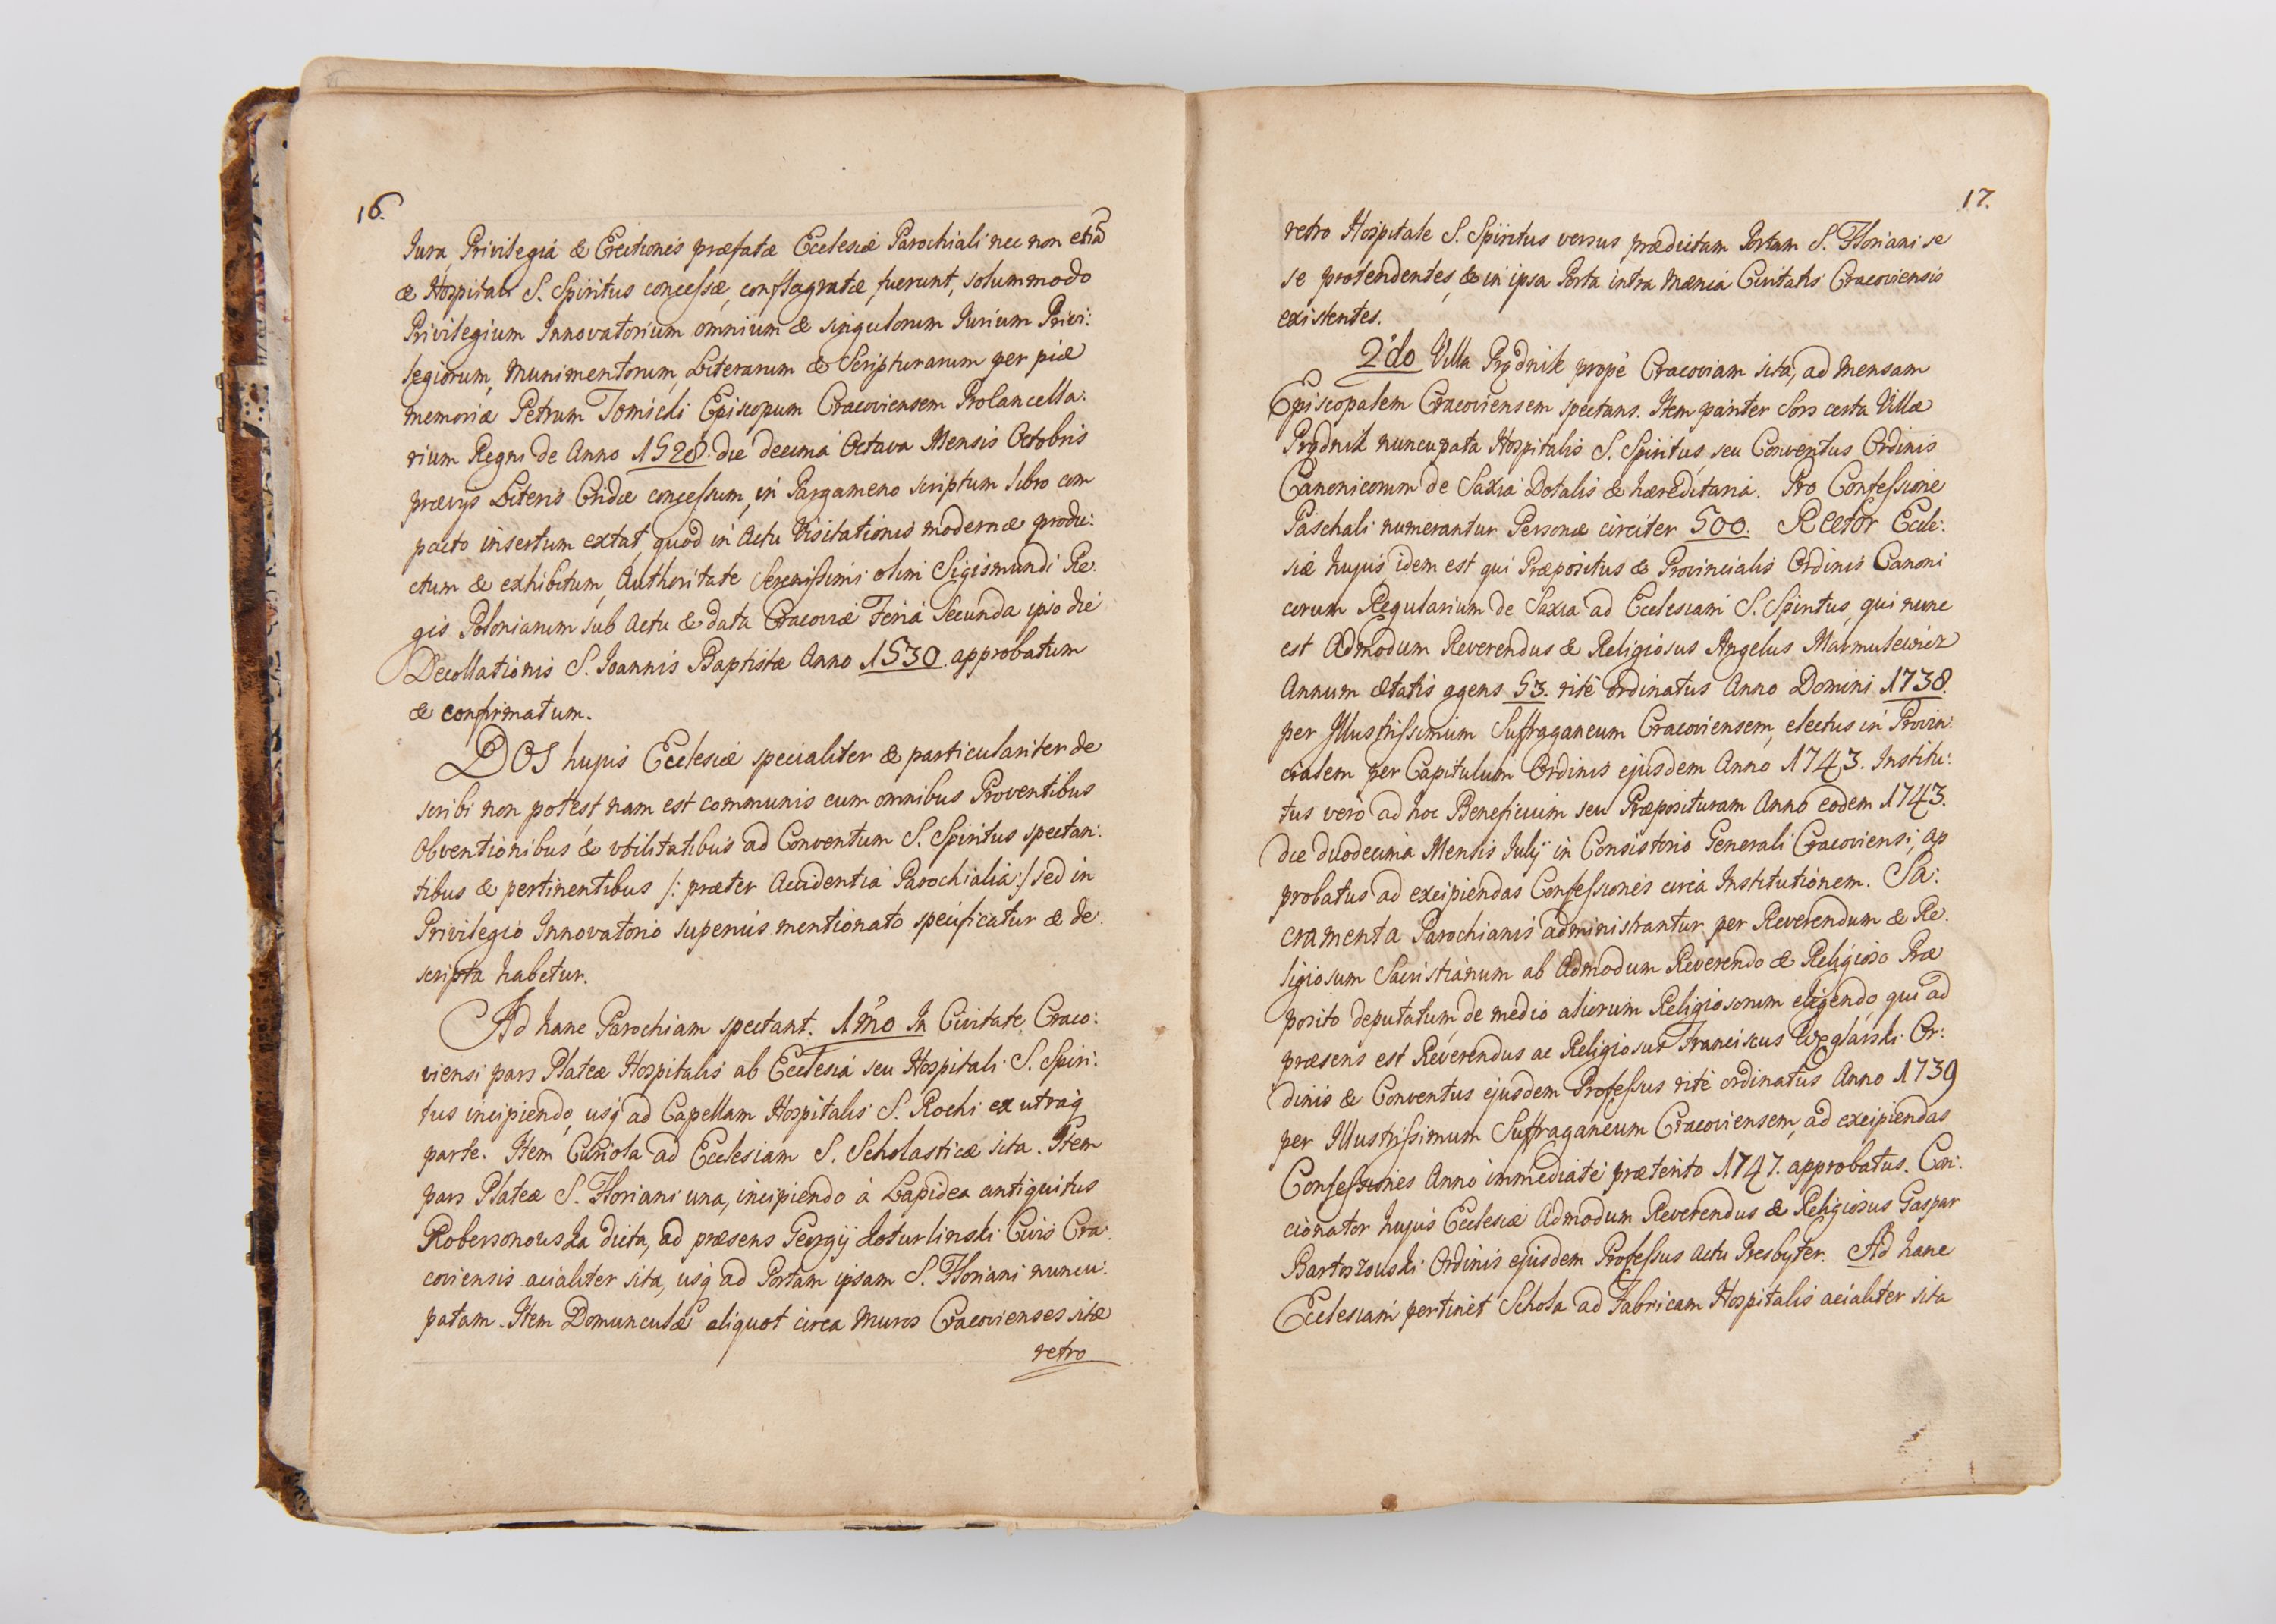 16.
Jura, Privilegia & Erectiones præfatæ Ecclesiæ Parochiali nec non etiã
& Hospitali S. Spiritus concessæ, conflagratæ fuerunt, solummodo
Privilegium Innovatorium omnium & singulorum Jurium Privi:
legiorum, Munimentorum, Literarum & Scripturarum per piæ
memoriæ Petrum Tomicki Episcopum Cracoviensem Procancella:
rium Regni de Anno 1528. die decima Octava Mensis Octobris
prævijs Literis Cridæ concessum, in Pargameno scriptum libro com
pacto insertum extat, quod in Actu Visitationis modernæ produ:
ctum & exhibitum, Authoritate Serenissimi olim Sigismundi Re:
gis Poloniarum sub Actu & data Cracoviæ Feria Secunda ipso die
Decollationis S. Joannis Baptistæ Anno 1530. approbatum
& confirmatum.
DOS hujus Ecclesiæ specialiter & particulariter de
scribi non potest nam est communis cum omnibus Proventibus
Obventionibus & vtilitatibus ad Conventum S. Spiritus spectan:
tibus & pertinentibus /: præter Accidentia Parochialia :/ sed in
Privilegio Innovatorio superius mentionato specificatur & de:
scripta habetur.
Ad hanc Parochiam spectant. 1mo In Civitate Craco:
viensi pars Plateæ Hospitalis ab Ecclesia seu Hospitali S. Spiri:
tus incipiendo, usq ad Capellam Hospitalis S. Rochi ex utraq
parte. Item Curiola ad Ecclesiam S. Scholasticæ sita. Item
pars Plateæ S. Floriani una, incipiendo à Lapidea antiquitus
Robersonowska dicta, ad præsens Georgij Koturlinski Civis Cra:
coviensis acialiter sita, usq ad Portam ipsam S. Floriani nuncu:
patam. Item Domunculæ aliquot circa Muros Cracovienses sitæ
retro
17.
retro Hospitale S. Spiritus versus prædictam Portam S. Floriani se
se protendentes, & in ipsa Porta intra Mænia Civitatis Cracoviensis
existentes.
2do Villa Prądnik propè Cracoviam sita, ad Mensam
Episcopalem Cracoviensem spectans. Item pariter Sors certa Villæ
Prądnik nuncupata Hospitalis S. Spiritus seu Conventus Ordinis
Canonicorum de Saxia Dotalis & hæreditaria. Pro Confessione
Paschali numerantur Personæ circiter 500. Rector Eccle:
siæ hujus idem est qui Præpositus & Provincialis Ordinis Canoni
corum Regularium de Saxia ad Ecclesiam S. Spiritus, qui nunc
est Admodum Reverendus & Religiosus Angelus Marmulewicz
Annum ætatis agens 53. ritè ordinatus Anno Domini 1738.
per Jllustrissimum Suffraganeum Cracoviensem, electus in Provin:
cialem per Capitulum Ordinis ejusdem Anno 1743. Institu:
tus verò ad hoc Beneficium seu Præposituram Anno eodem 1743.
die duodecima Mensis Julij in Consistorio Generali Cracoviensi, ap
probatus ad excipiendas Confessiones circa Institutionem. Sa:
cramenta Parochianis administrantur per Reverendum & Re:
ligiosum Sacristianum ab Admodum Reverendo & Religioso Præ
posito deputatum de medio aliorum Religiosorum eligendo, qui ad
præsens est Reverendus ac Religiosus Franciscus Węglarski Or:
dinis & Conventus ejusdem Professus ritè ordinatus Anno 1739
per Jllustrissimum Suffraganeum Cracoviensem, ad excipiendas
Confessiones Anno immediatè præterito 1747. approbatus. Con:
cionator hujus Ecclesiæ Admodum Reverendus & Religiosus Gaspar
Bartoszowski Ordinis ejusdem Professus Actu Presbyter. Ad hanc
Ecclesiam pertinet Schola ad Fabricam Hospitalis acialiter sita